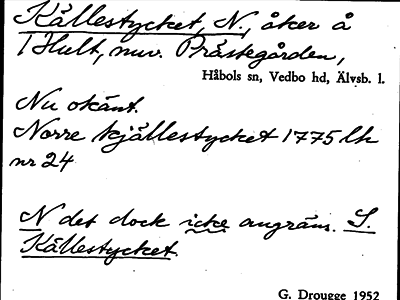 Källestycket, N., åker å
1 Hult, nuv. Prästegården,
Håbols sn, Vedbo hd, Älvsb. l.
Nu okänt.
Norre kjällestycket 1775 lh
nr 24
N det dock icke angräns. S.
Källestycket.
G. Drougge 1952